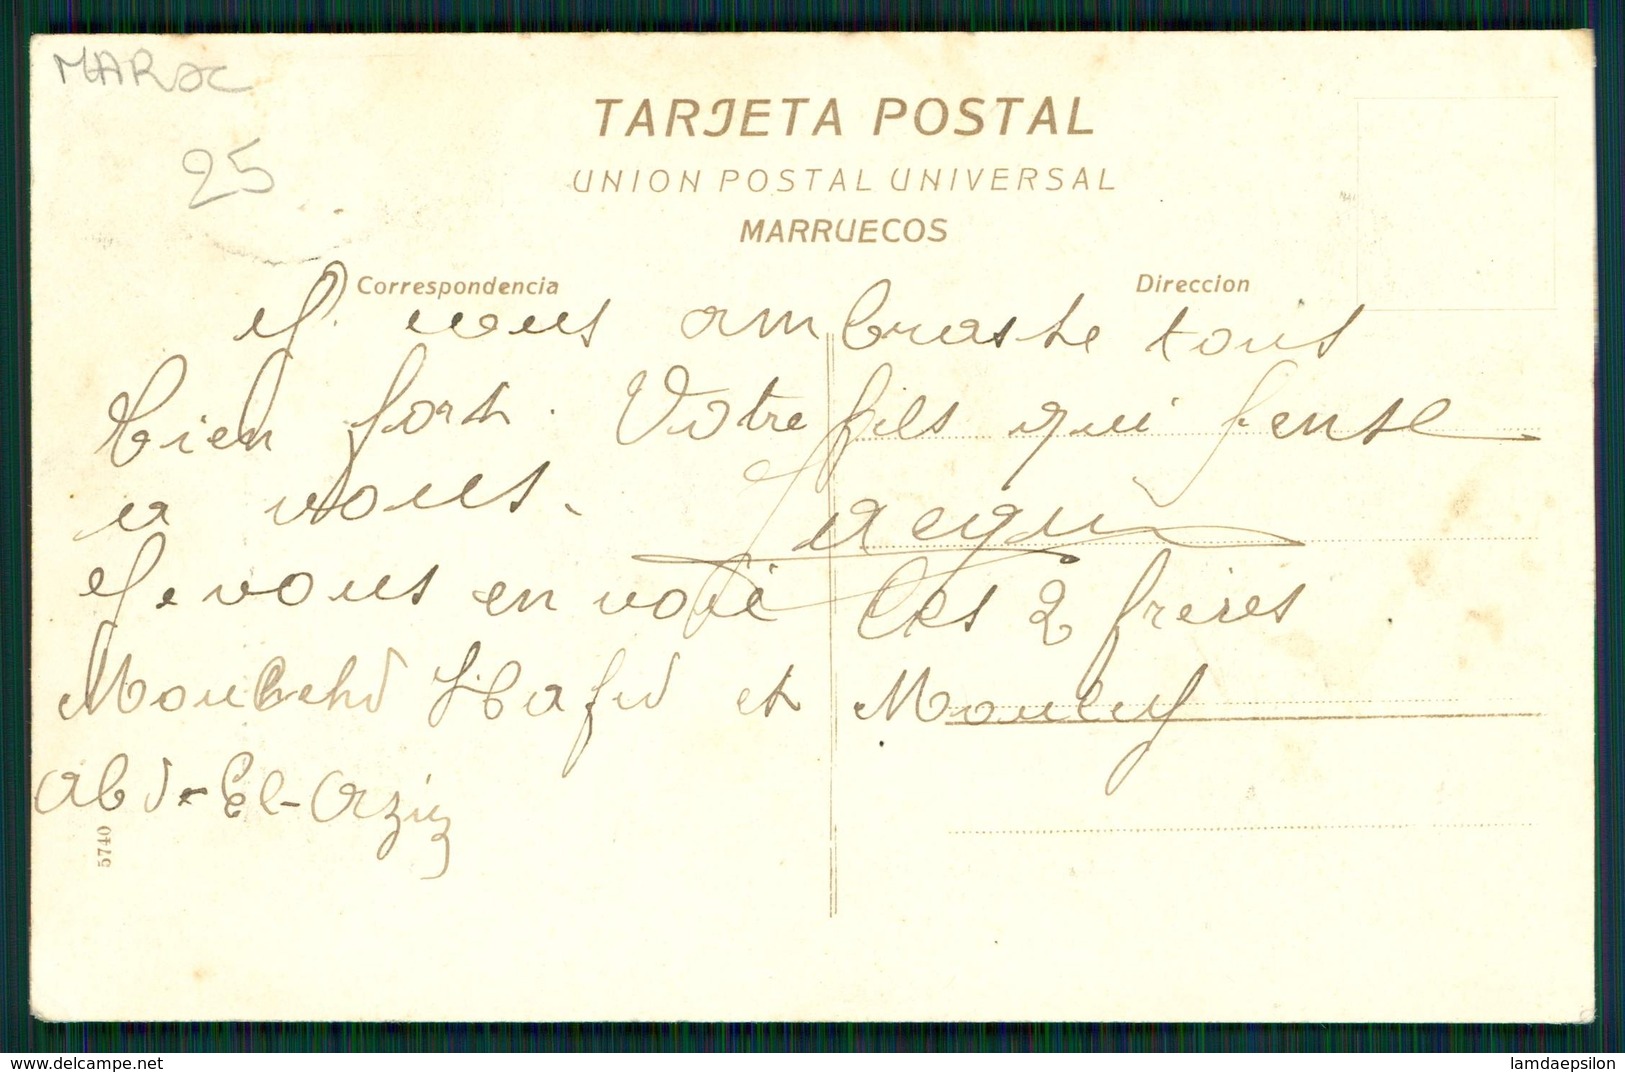 MAROC
25
TARJETA POSTAL
UNION POSTAL UNIVERSAL
MARRUECOS
Correspondencia
Direccion
J. vous ambrasse tous
bien fort. Votre fils qui pense
a vous.
Je vous en voie les 2 frères
Hafid et Mouley
Abd-El-Aziz
5740
delcampe.net
lamdaepsilon